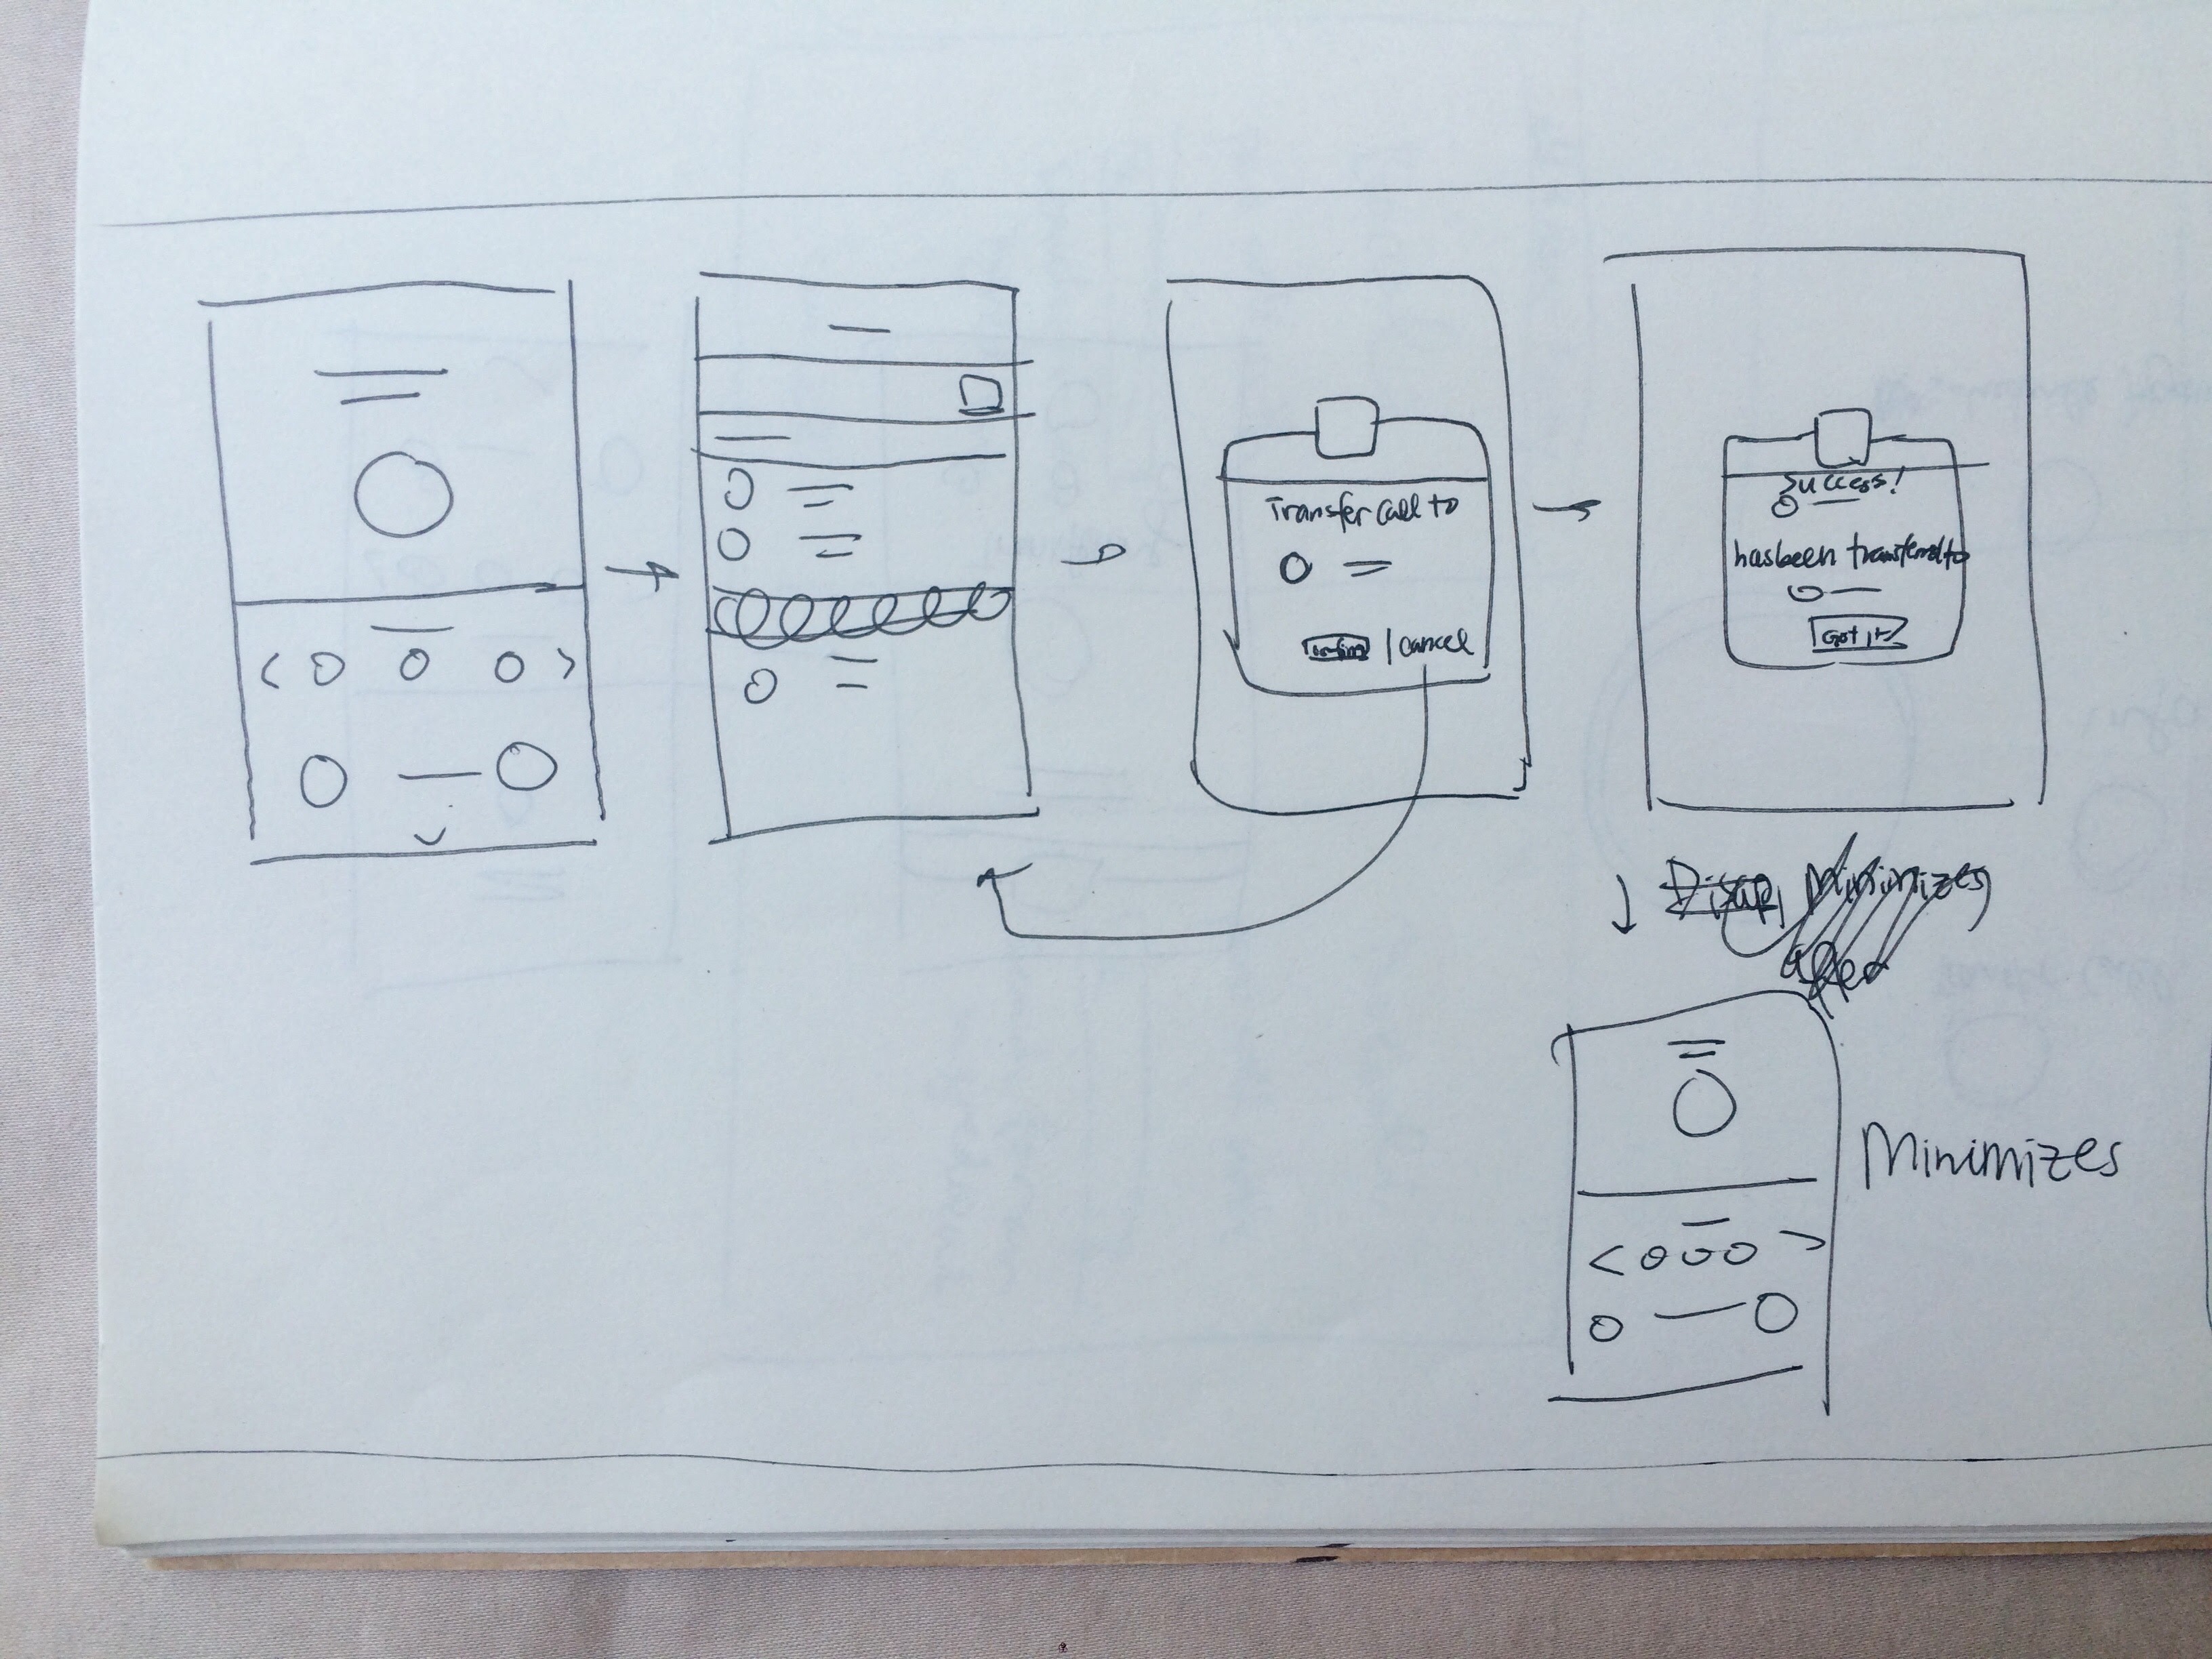 Transfer call to
| cancel
Success!
has been transferred to
Got it
Minimizes
after
Minimizes